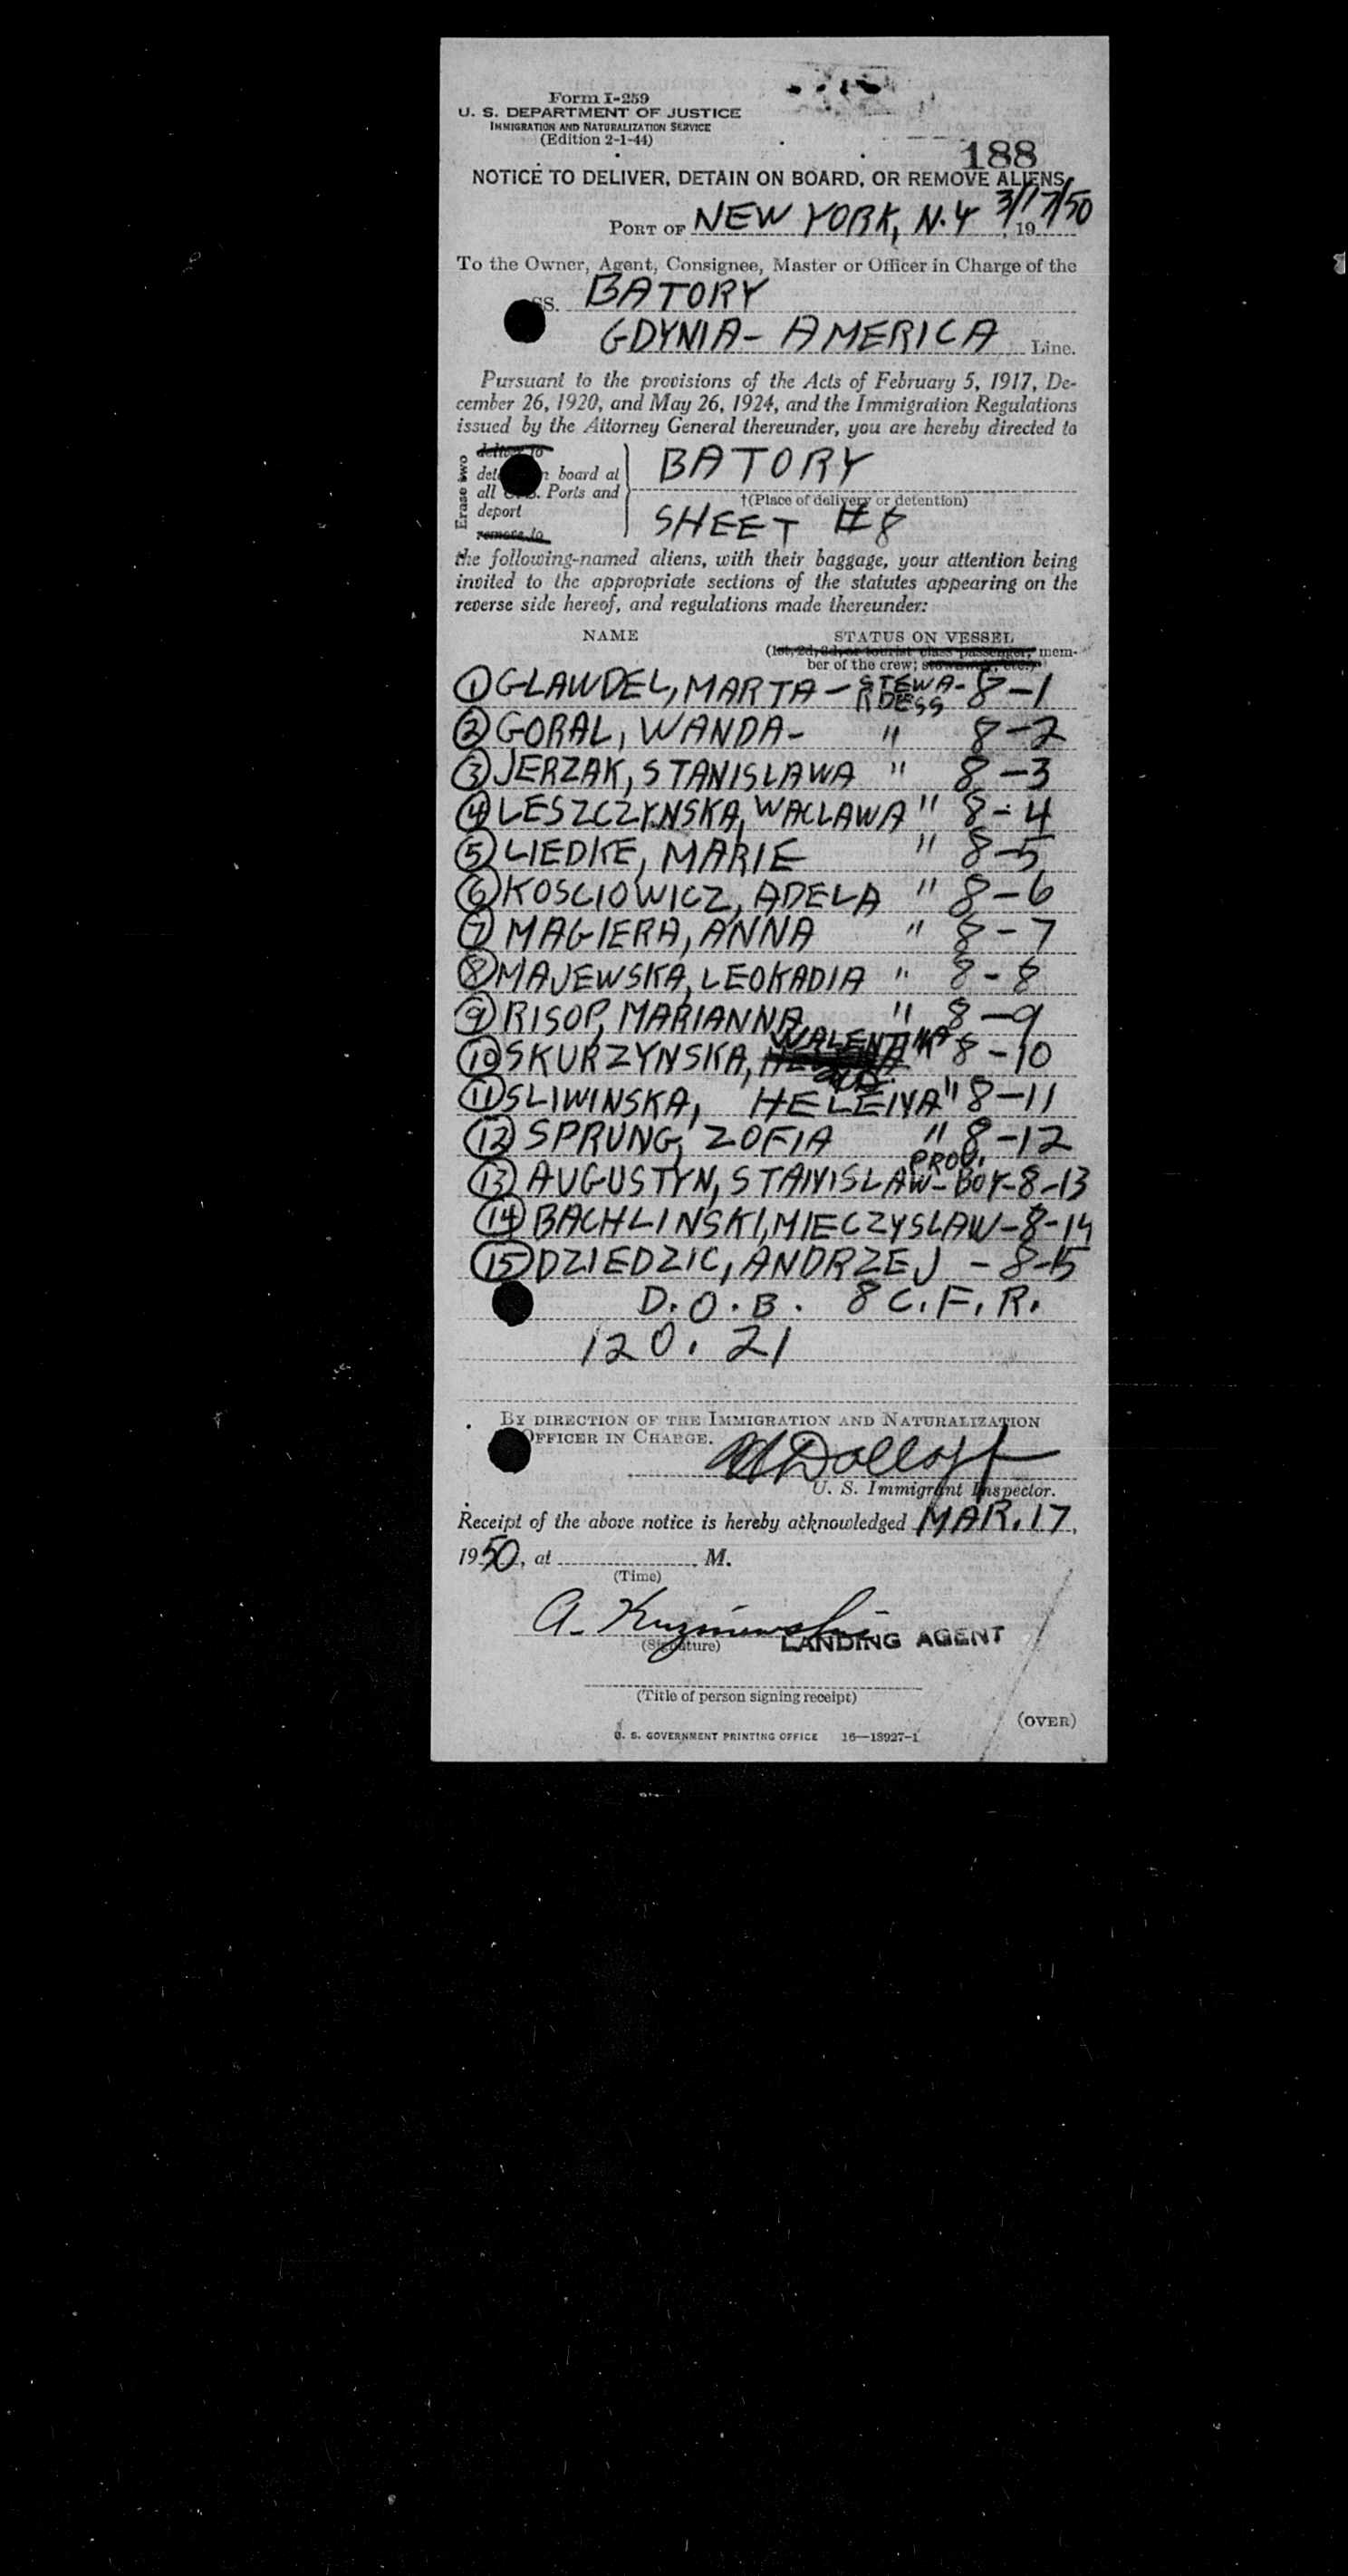 Form I-259
U. S. DEPARTMENT OF JUSTICE
IMMIGRATION AND NATURALIZATION SERVICE
(Edition 2-1-44)
188
NOTICE TO DELIVER, DETAIN ON BOARD, OR REMOVE ALIENS
PORT OF NEW YORK, N.Y 3/17/50, 19
To the Owner, Agent, Consignee, Master or Officer in Charge of the
SS. BATORY
GDYNIA-AMERICA Line.
Pursuant to the provisions of the Acts of February 5, 1917, De-
cember 26, 1920, and May 26, 1924, and the Immigration Regulations
issued by the Attorney General thereunder, you are hereby directed to
Erase two
deliver to
board at
all Ports and
deport
remove to
BATORY
†(Place of delivery or detention)
SHEET #8
the following-named aliens, with their baggage, your attention being
invited to the appropriate sections of the statutes appearing on the
reverse side hereof, and regulations made thereunder:
NAME STATUS ON VESSEL
(1st, 2d, 3d, or tourist class passenger, mem-
ber of the crew; stowaway, etc.)
1 GLAWDEL, MARTA - STEWA- 8-1
RDESS
2 GORAL, WANDA- " 8-2
3 JERZAK, STANISLAWA " 8-3
4 LESZCZYNSKA, WACLAWA " 8-4
5 LIEDKE, MARIE " 8-5
6 KOSCIOWICZ, ADELA " 8-6
7 MAGIERA, ANNA " 8-7
8 MAJEWSKA, LEOKADIA " 8-8
9 RISOP, MARIANNA " 8-9
WALENTINA
10 SKURZYNSKA, " 8-10
11 SLIWINSKA, HELENA " 8-11
12 SPRUNG, ZOFIA " 8-12
PROV.
13 AUGUSTYN, STANISLAW-BOY-8-13
14 BACHLINSKI, MIECZYSLAW-8-14
15 DZIEDZIC, ANDRZEJ - 8-15
D.O.B. 8 C.F.R.
120.21
BY DIRECTION OF THE IMMIGRATION AND NATURALIZATION
OFFICER IN CHARGE.
Dolloff
U. S. Immigrant Inspector.
Receipt of the above notice is hereby acknowledged MAR. 17,
1950, at M.
(Time)
A. Kuzniewski
(Signature) LANDING AGENT
(Title of person signing receipt)
(OVER)
U. S. GOVERNMENT PRINTING OFFICE 16—18927-1